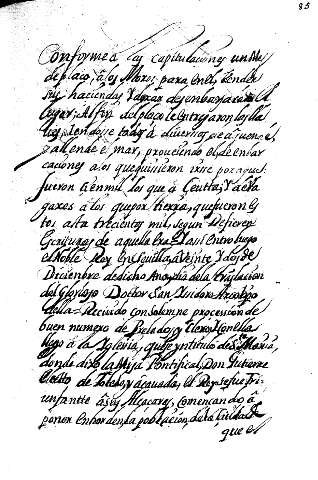 85
Conforme a las capitulaciones un Mes
de plaço, â los Moros, para en el, vender
sus haciendas y dexar desembarazado el
lugar; Al fin del plaço le entregaron las lla
ues, yendose todos â diuersas
allende el mar, proueiendo el de embar
caciones a los que quisieron irse por agua
fueron cien mil los que â Ceuta, y a
gares â los que por tierra, que fueron es
tos asta trecientos mil, segun Refieren
Escrituras de aquella Era. Y asi entro luego
el Noble Rey en Seuilla, â Veinte y dos de
Diciembre de dicho Año, dia de la traslacion
del Glorioso Doctor San Isidoro Arcobpo
della. Reciuido con solemne procession de
buen numero de Prelados, y Clero, y con ella
llego â la Iglesia, que yntitulò de Sta. Maria,
donde dixo la Misa Pontifical, Don Gutierre
electo de Toledo, y acauada, el Rey se fue tri
unfantte â sus Alcaçares, començando â
poner en horden la poblacion, de la Ciudad
que el